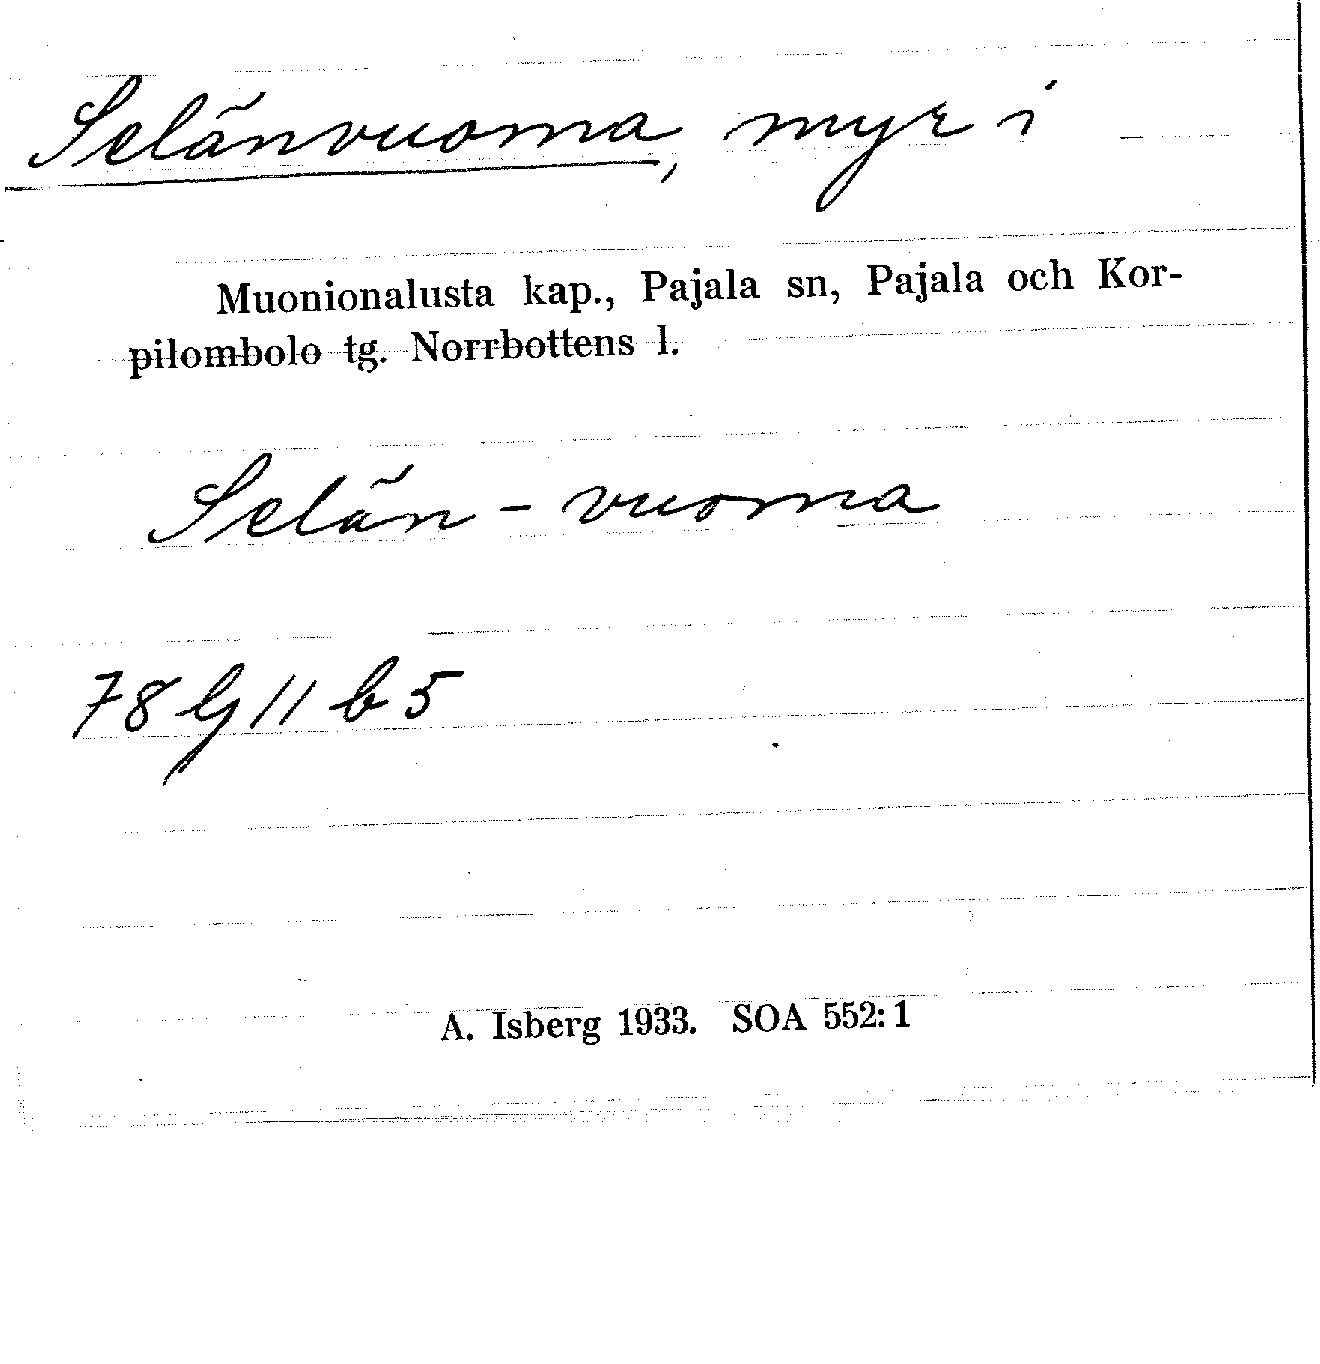 Selänvuoma, myr i
Muonionalusta kap., Pajala sn, Pajala och Kor-
pilombolo tg. Norrbottens l.
Selän-vuoma
78 lj 11 b 5
A. Isberg 1933. SOA 552:1